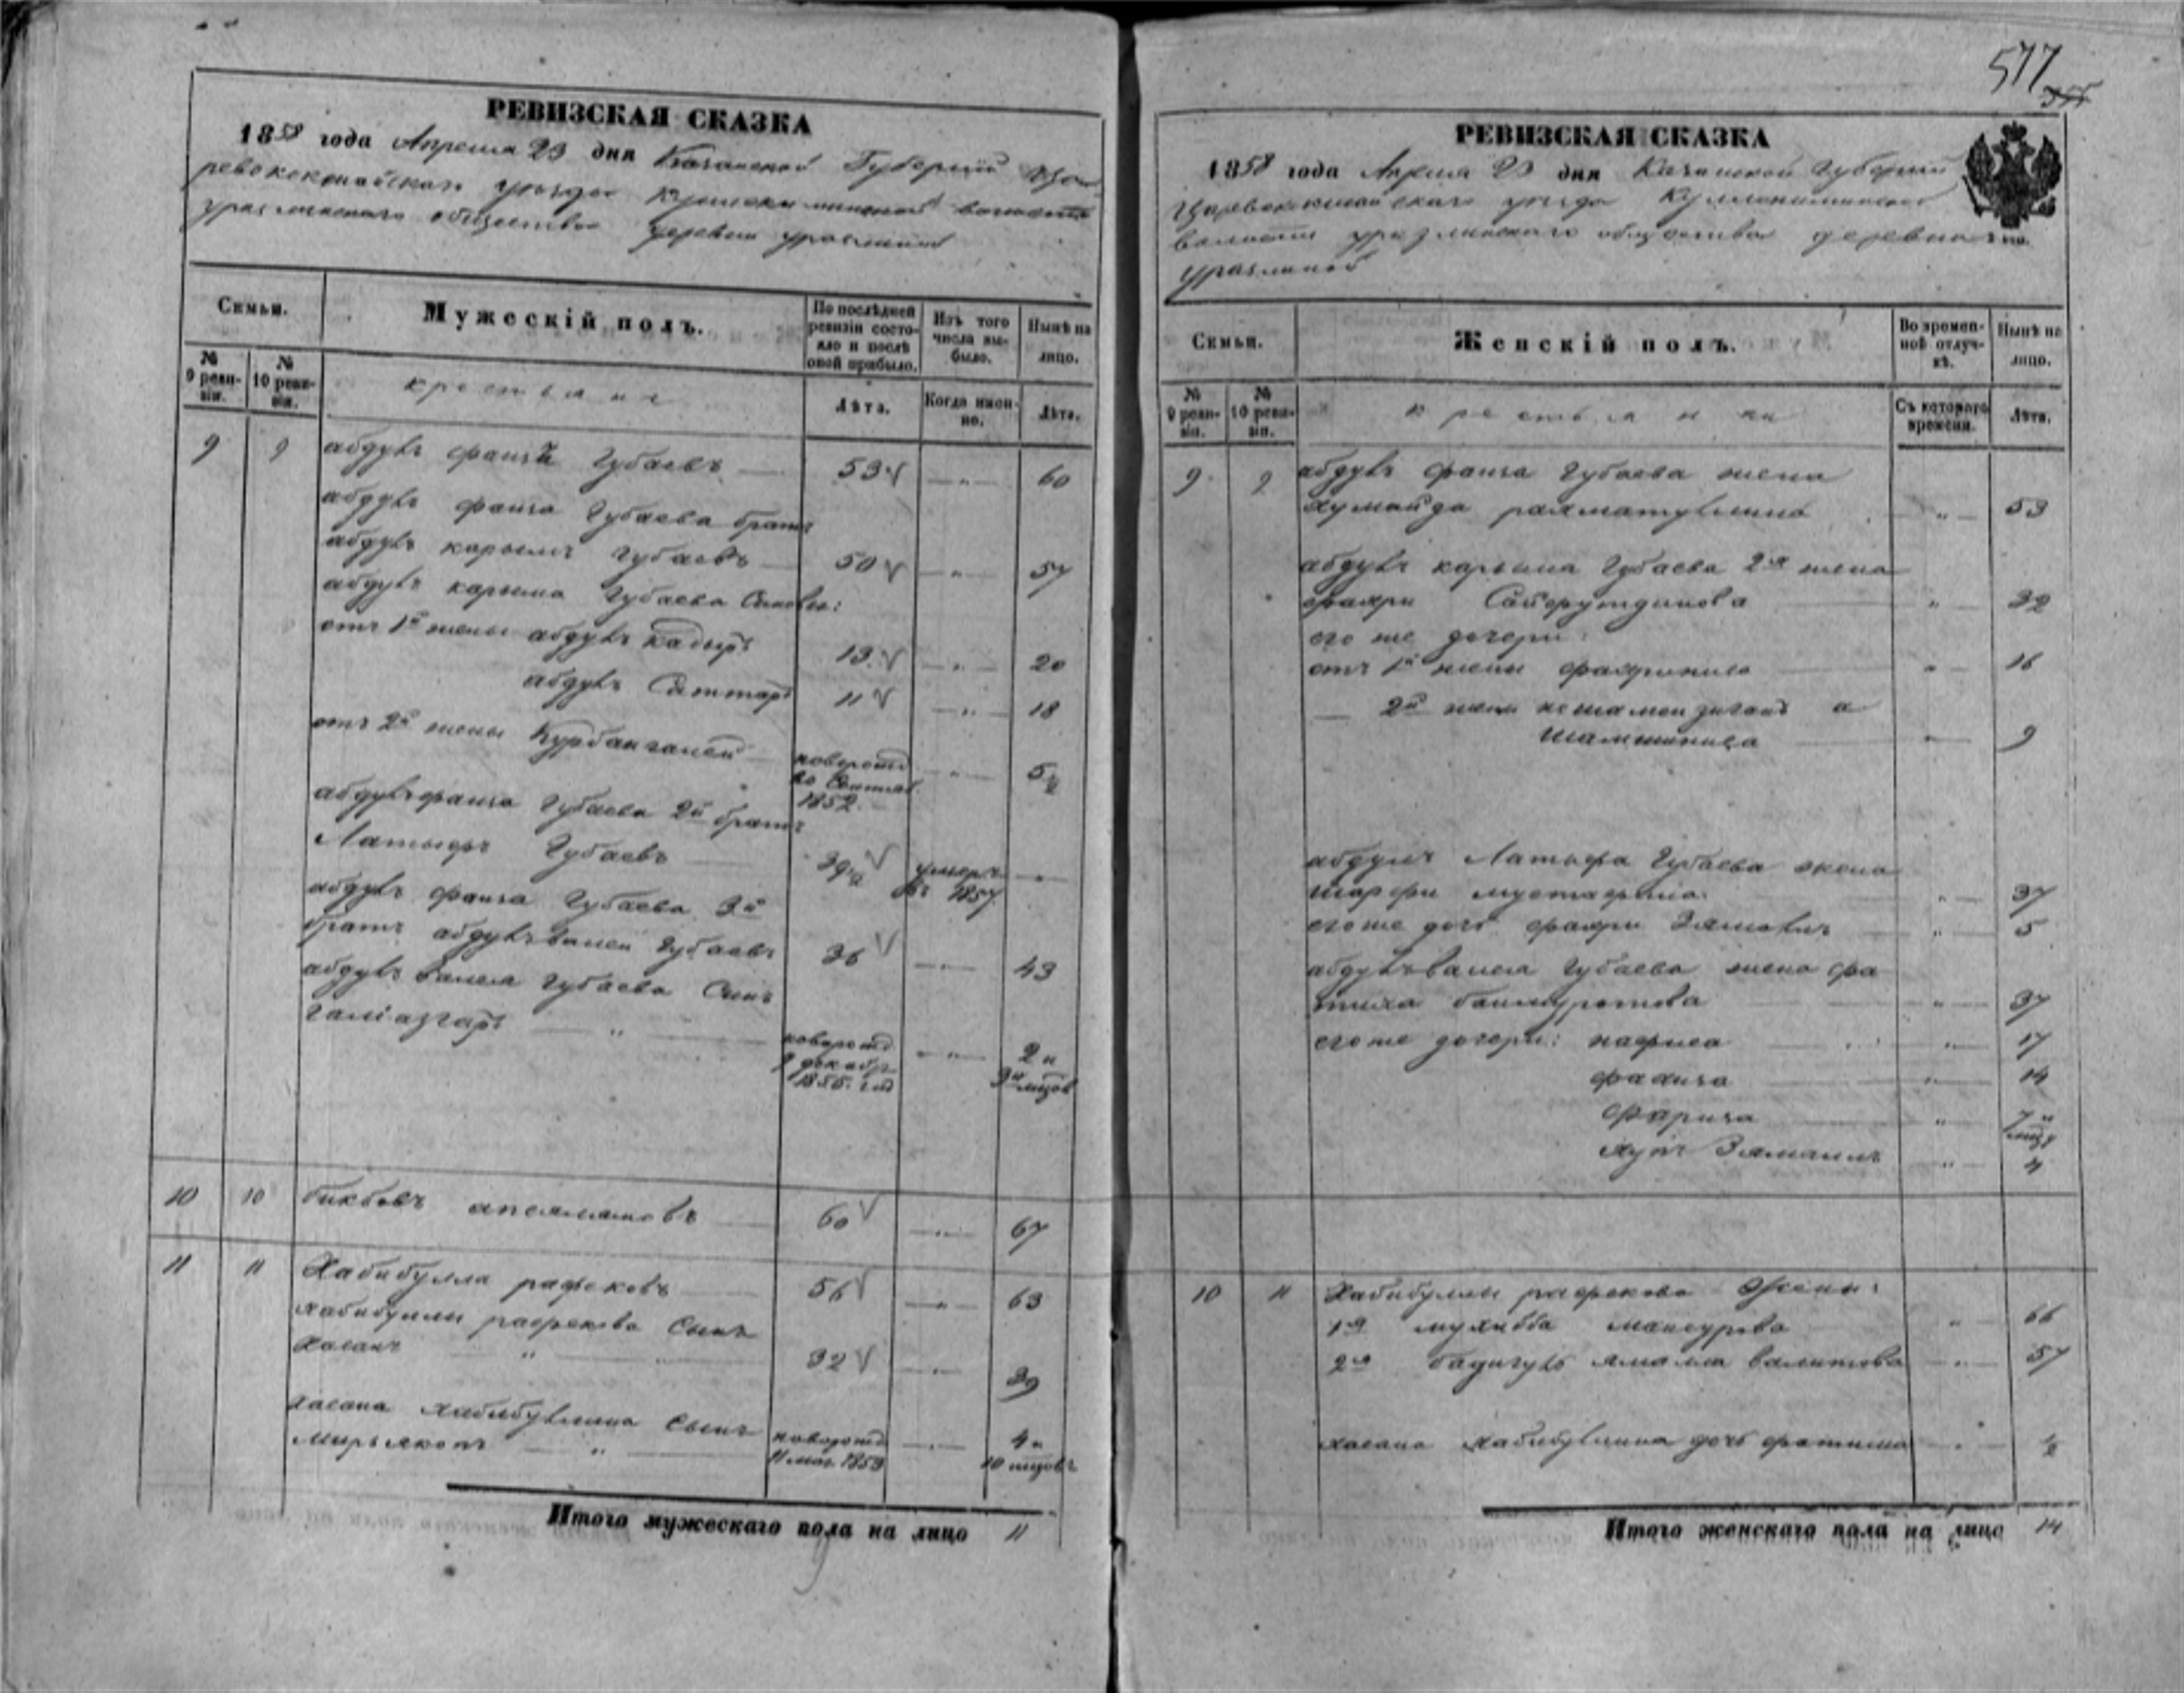 577
РЕВИЗСКАЯ СКАЗКА
1858 года Апреля 23 дня Казанской Губернии Ца
ревококшайскаго уезда волости
уразлинскаго общества деревни уразлиной
Семьи.
Мужескій полъ.
По послѣдней ревизіи состояло и послѣ оной прибыло.
Изъ того числа выбыло.
Нынѣ на лицо.
№ 9 ревизіи.
№ 10 ревизіи.
крестьяне
Лѣта.
Когда именно.
Лѣта.
9 9 абдулъ фаизй Губаевъ 53 60
абдулъ фаиза Губаева братъ
абдулъ карымъ Губаевъ 50 57
абдулъ карыма Губаева Сыновья:
отъ 1й жены абдулъ кадыръ 13 20
абдулъ Саттаръ 11 18
отъ 2й жены Курбангалей новорожд 5½
во Сентяб
1852
абдулъ фаиза Губаева 2й братъ
Латыфъ Губаевъ 39½ умеръ
въ 1857
абдулъ фаиза Губаева 3й
братъ абдулъвалей Губаевъ 36 43
абдулъ валея Губаева Сынъ
галiазгаръ новорожд 2 и
декабр 3 мцов
1855 год
10 10 бикбовъ 60 67
11 11 Хабибулла рафековъ 56 63
хабибуллы рафекова Сынъ
Хасанъ 32 39
хасана хабибуллина Сынъ новорожд 4 и
11 мая 1853 10 мцовъ
Итого мужескаго пола на лицо 11
РЕВИЗСКАЯ СКАЗКА
1858 года Апреля 23 дня Казанской Губернии
Царевококшайскаго уезда
волости уразлинскаго общества деревни
уразлиной
Семьи.
Женскій полъ.
Во временной отлучкѣ.
Нынѣ на лицо.
№ 9 ревизіи.
№ 10 ревизіи.
крестьянки
Съ котораго времени.
Лѣта.
9 9 абдулъ фаиза Губаева жена
хумайда рахматуллина 53
абдулъ карыма Губаева 2я жена
фахри Сайфутдинова 32
его же дочери:
отъ 1й жены 16
2й жены а
9
абдулъ Латыфа Губаева жена
шарфи мустафина 37
его же дочь фахри Зямалъ 5
абдулъвалея Губаева жена фа
тиха баимуратова 37
его же дочери: нафиса 17
14
7 и
Зямалъ 4
10 11 Хабибуллы рафекова Жены:
1я мухибба мансурова 66
2я валитова 57
хасана хабибуллина дочь фатыма ½
Итого женскаго пола на лицо 14